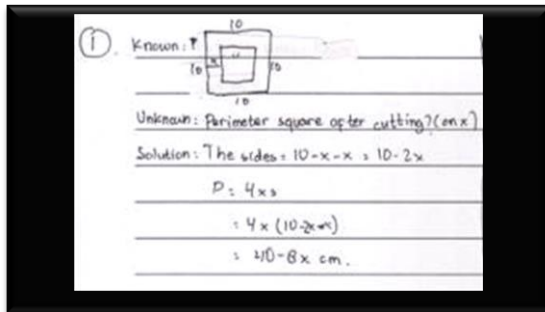 1. Known:
10
x
10 10
10
Unknown: Perimeter square after cutting? (on x)
Solution: The sides = 10-x-x = 10-2x
P = 4xs
= 4x (10-2x)
= 40-8x cm.